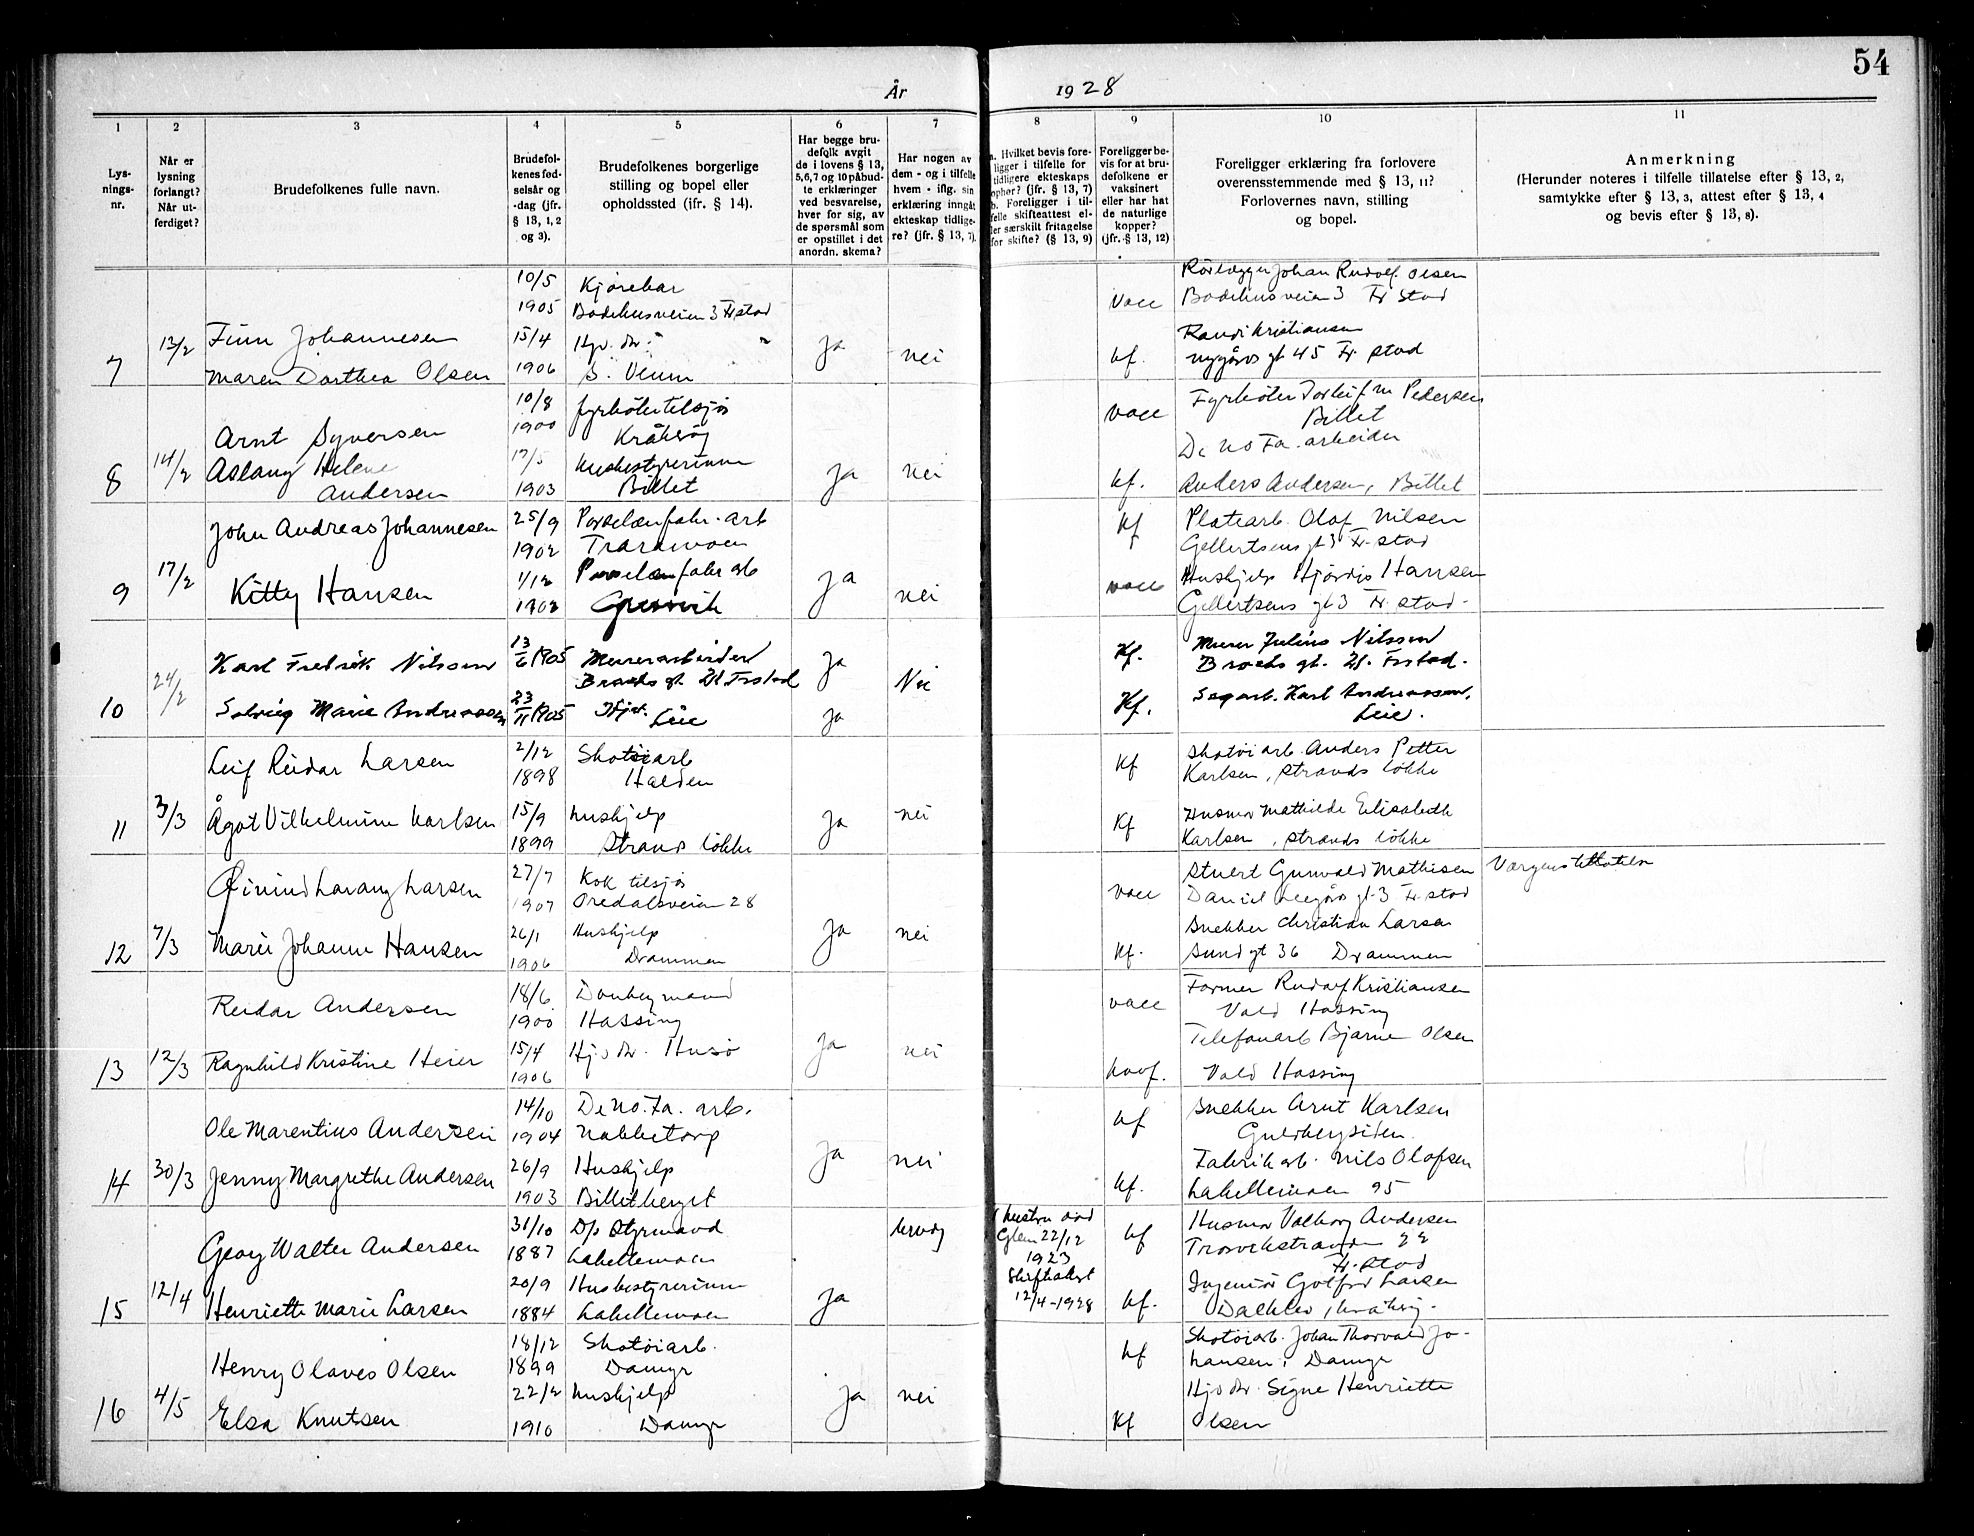 54
År 1928
1 2 3 4 5 6 7 8 9 10 11
Lys-
nings-
nr.
Når er
lysning
forlangt?
Når ut-
ferdiget?
Brudefolkenes fulle navn.
Brudefol-
kenes fød-
selsår og
-dag (jfr.
§ 13, 1, 2
og 3).
Brudefolkenes borgerlige
stilling og bopel eller
opholdssted (ifr. § 14).
Har begge bru-
defolk avgit
de i lovens § 13,
5,6,7 og 10 påbud-
te erklæringer
ved besvarelse,
hver for sig, av
de spørsmål som
er opstillet i det
anordn. skema?
Har nogen av
dem - og i tilfelle
hvem - iflg. sin
erklæring inngåt
ekteskap tidlige-
re? (jfr. § 13, 7).
a. Hvilket bevis fore-
ligger i tilfelle for
tidligere ekteskaps
ophør? (jfr. § 13, 7)
b. Foreligger i til-
felle skifteattest el-
ler særskilt fritagelse
for skifte? (§ 13, 9)
Foreligger be-
vis for at bru-
defolkene er
vaksinert
eller har hat
de naturlige
kopper?
(jfr. § 13, 12)
Foreligger erklæring fra forlovere
overensstemmende med § 13, 11?
Forlovernes navn, stilling
og bopel.
Anmerkning
(Herunder noteres i tilfelle tillatelse efter § 13, 2,
samtykke efter § 13, 3, attest efter § 13, 4
og bevis efter § 13, 8).
7 13/2 Finn Johannesen 10/5 1905 Kjørekar
Bodehusveien 3 Fr stad vacc Rørlegger Johan Rudolf Olsen
Bodehusveien 3 Fr stad
Maren Dorthea Olsen 15/4 1906 Hjv. dtr.
S. Veum ja nei kf. Randi Kristiansen
nygårds gt 45 Fr. stad
8 14/2 Arnt Syversen 10/8 1900 fyrbøter tilsjøs
Kråkerøy vacc Fyrbøter Torleif M Pedersen
Billet
Aslaug Helene
Andersen 17/5 1903 husbestyrerinne
Billet ja nei kf. De No Fa. arbeider
Anders Andersen, Billet
9 17/2 John Andreas Johannesen 25/9 1902 Porselænfabr. arb
Traramoen kf Platearb. Olaf Nilsen
Gellertsens gt 3 Fr. stad
Kitty Hansen 1/12 1902 Porselænfabr arb
Gressvik ja nei vacc Hushjelp Hjørdis Hansen
Gellertsens gt 3 Fr. stad.
10 24/2 Karl Fredrik Nilsson 13/6 1905 Murerarbeider
Brochs gt. 21 Frstad ja Nei Kf. Murer Julius Nilsson
Brochs gt. 21. Frstad.
Solveig Marie Andreassen 23/11 1905 Hjv.
Leie ja Kf. Sagarb. Karl Andreassen,
Leie.
11 3/3 Leif Reidar Larsen 2/12 1898 Skotøiarb
Halden kf Skotøiarb. Anders Petter
Karlsen, Strands løkke
Ågot Vilhelmine Karlsen 15/9 1899 hushjelp
Strands løkke ja nei Kf Husmor Mathilde Elisabeth
Karlsen, Strands løkke
12 7/3 Øivind Lavang Larsen 27/7 1907 Kok tilsjøs
Oredalsveien 28 vacc Stuert Gunvald Mathisen
Daniel Leegårds gt 3 Fr stad Vergens tillatelse
Marie Johanne Hansen 26/1 1906 Hushjelp
Drammen ja nei kf. Snekker Christian Larsen
Sund gt 36 Drammen
13 12/3 Reidar Andersen 18/6 1900 Donkeymand
Hassing vacc Farmer Rudolf Kristiansen
Vald Hassing
Ragnhild Kristine Heier 15/4 1906 Hjv dtr. Husø ja nei Telefonarb Bjarne Olsen
Vald Hassing
14 30/3 Ole Marentius Andersen 14/10 1904 De No. Fa. arb.
Nabbetorp kf Snekker Arnt Karlsen
Guldbergsiden
Jenny Margrethe Andersen 26/9 1903 Hushjelp
Billetberget ja nei kf. Fabrikarb. Nils Olofsen
Labellemoen 95
15 12/4 Georg Walter Andersen 31/10 1887 D/s Styrmand
Labellemoen hustru død
Glem 22/12
1923
Skifteattest
12/4-1928 kf Husmor Valborg Andersen
Trosvikstranden 22
Fr. stad
Henriette Marie Larsen 20/9 1884 Husbestyrerinne
Labellemoen ja kf. Ingeniør Golfred Larsen
Dalklev, Kråkerøy.
16 4/5 Henry Olaves Olsen 18/12 1899 Skotøiarb.
Damyr kf Skotøiarb. Johan Thorvald Jo-
hansen, Damyr
Elsa Knutsen 22/2 1910 hushjelp
Damyr ja nei Kf Hjv dtr. Signe Henriette
Olsen